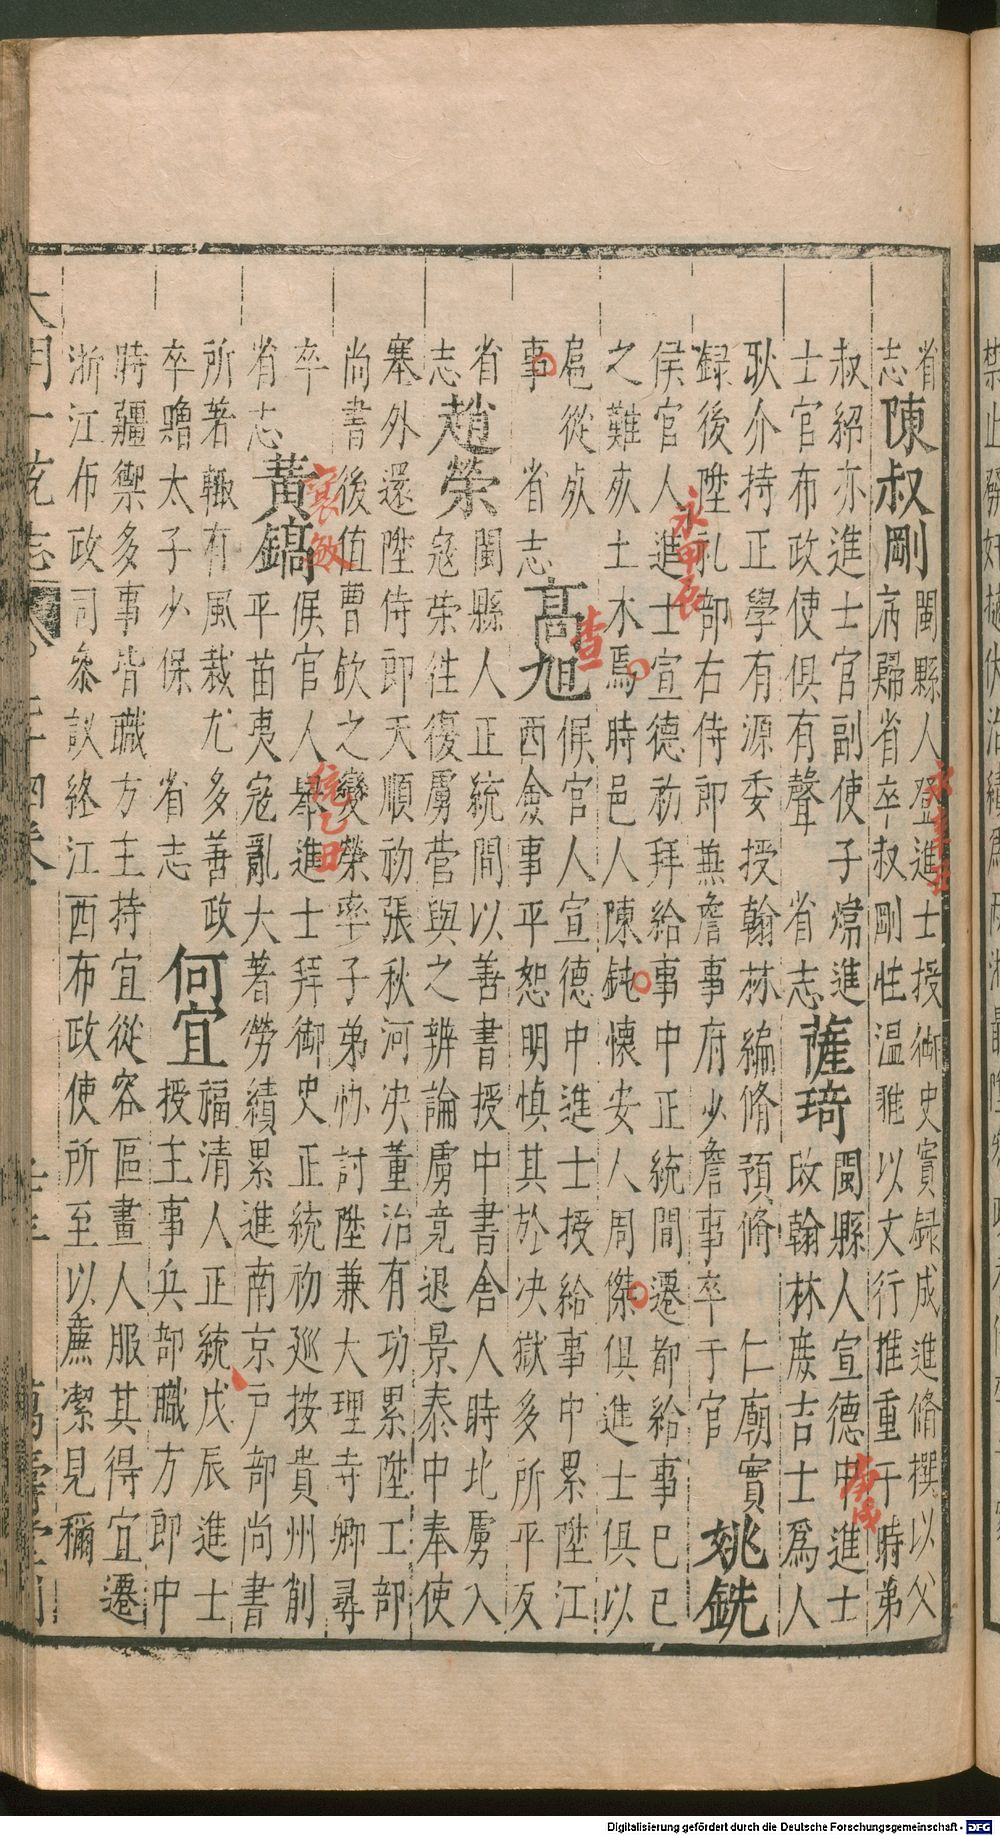 省志
陳叔剛
閩縣人登進士授御史實録成進脩撰以父
病歸省卒叔剛性温雅以文行推重于時弟
叔紹亦進士官副使子煒進
士官布政使俱有聲 省志
薩琦
閩縣人宣德中進士
改翰林庶吉士爲人
耿介持正學有源委授翰林編脩預脩 仁廟實
録後陞礼部右侍郎蕪詹事府少詹事卒于官
姚銑
侯官人進士宣德初拜給事中正統間遷都給事巳巳
之難歿土木焉時邑人陳鈍懷安人周傑俱進士俱以
扈從歿
事 省志
高旭
候官人宣德中進士授給事中累陞江
西僉事平恕明慎其於决獄多所平反
省志
趙榮
閩縣人正統間以善書授中書舍人時北虜入
寇榮往復虜營與之辨論虜竟退景泰中奉使
塞外還陞侍郎天順初張秋河决董治有功累陞工部
尚書後值曹欽之變榮率子弟协討陞兼大理寺卿尋
卒
省志
黃鎬
候官人舉進士拜御史正統初廵按貴州削
平苗夷寇亂大著勞績累進南京戸部尚書
所著輙有風裁尤多善政
卒贈太子少保 省志
何宜
福清人正統戊辰進士
授主事兵部職方郎中
時疆禦多事皆職方主持宜從容區畫人服其得宜遷
浙江布政司叅議終江西布政使所至以廉潔見稱
大明一統志
萬壽堂刊
庚戌
永甲辰
查
襄敏
統乙丑
Digitalisierung gefördert durch die Deutsche Forschungsgemeinschaft - DFG